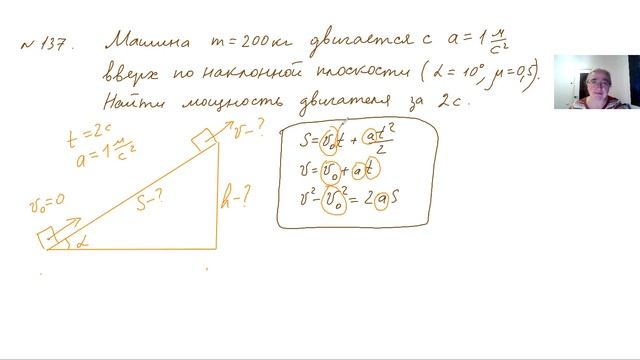 № 137. Машина m = 200 кг двигается с a = 1 м/с²
вверх по наклонной плоскости (α = 10°, μ = 0,5).
Найти мощность двигателя за 2с.
t = 2c
a = 1 м/с²
v₀ = 0
α
S - ?
v - ?
h - ?
S = v₀t + at²/2
v = v₀ + at
v² - v₀² = 2aS